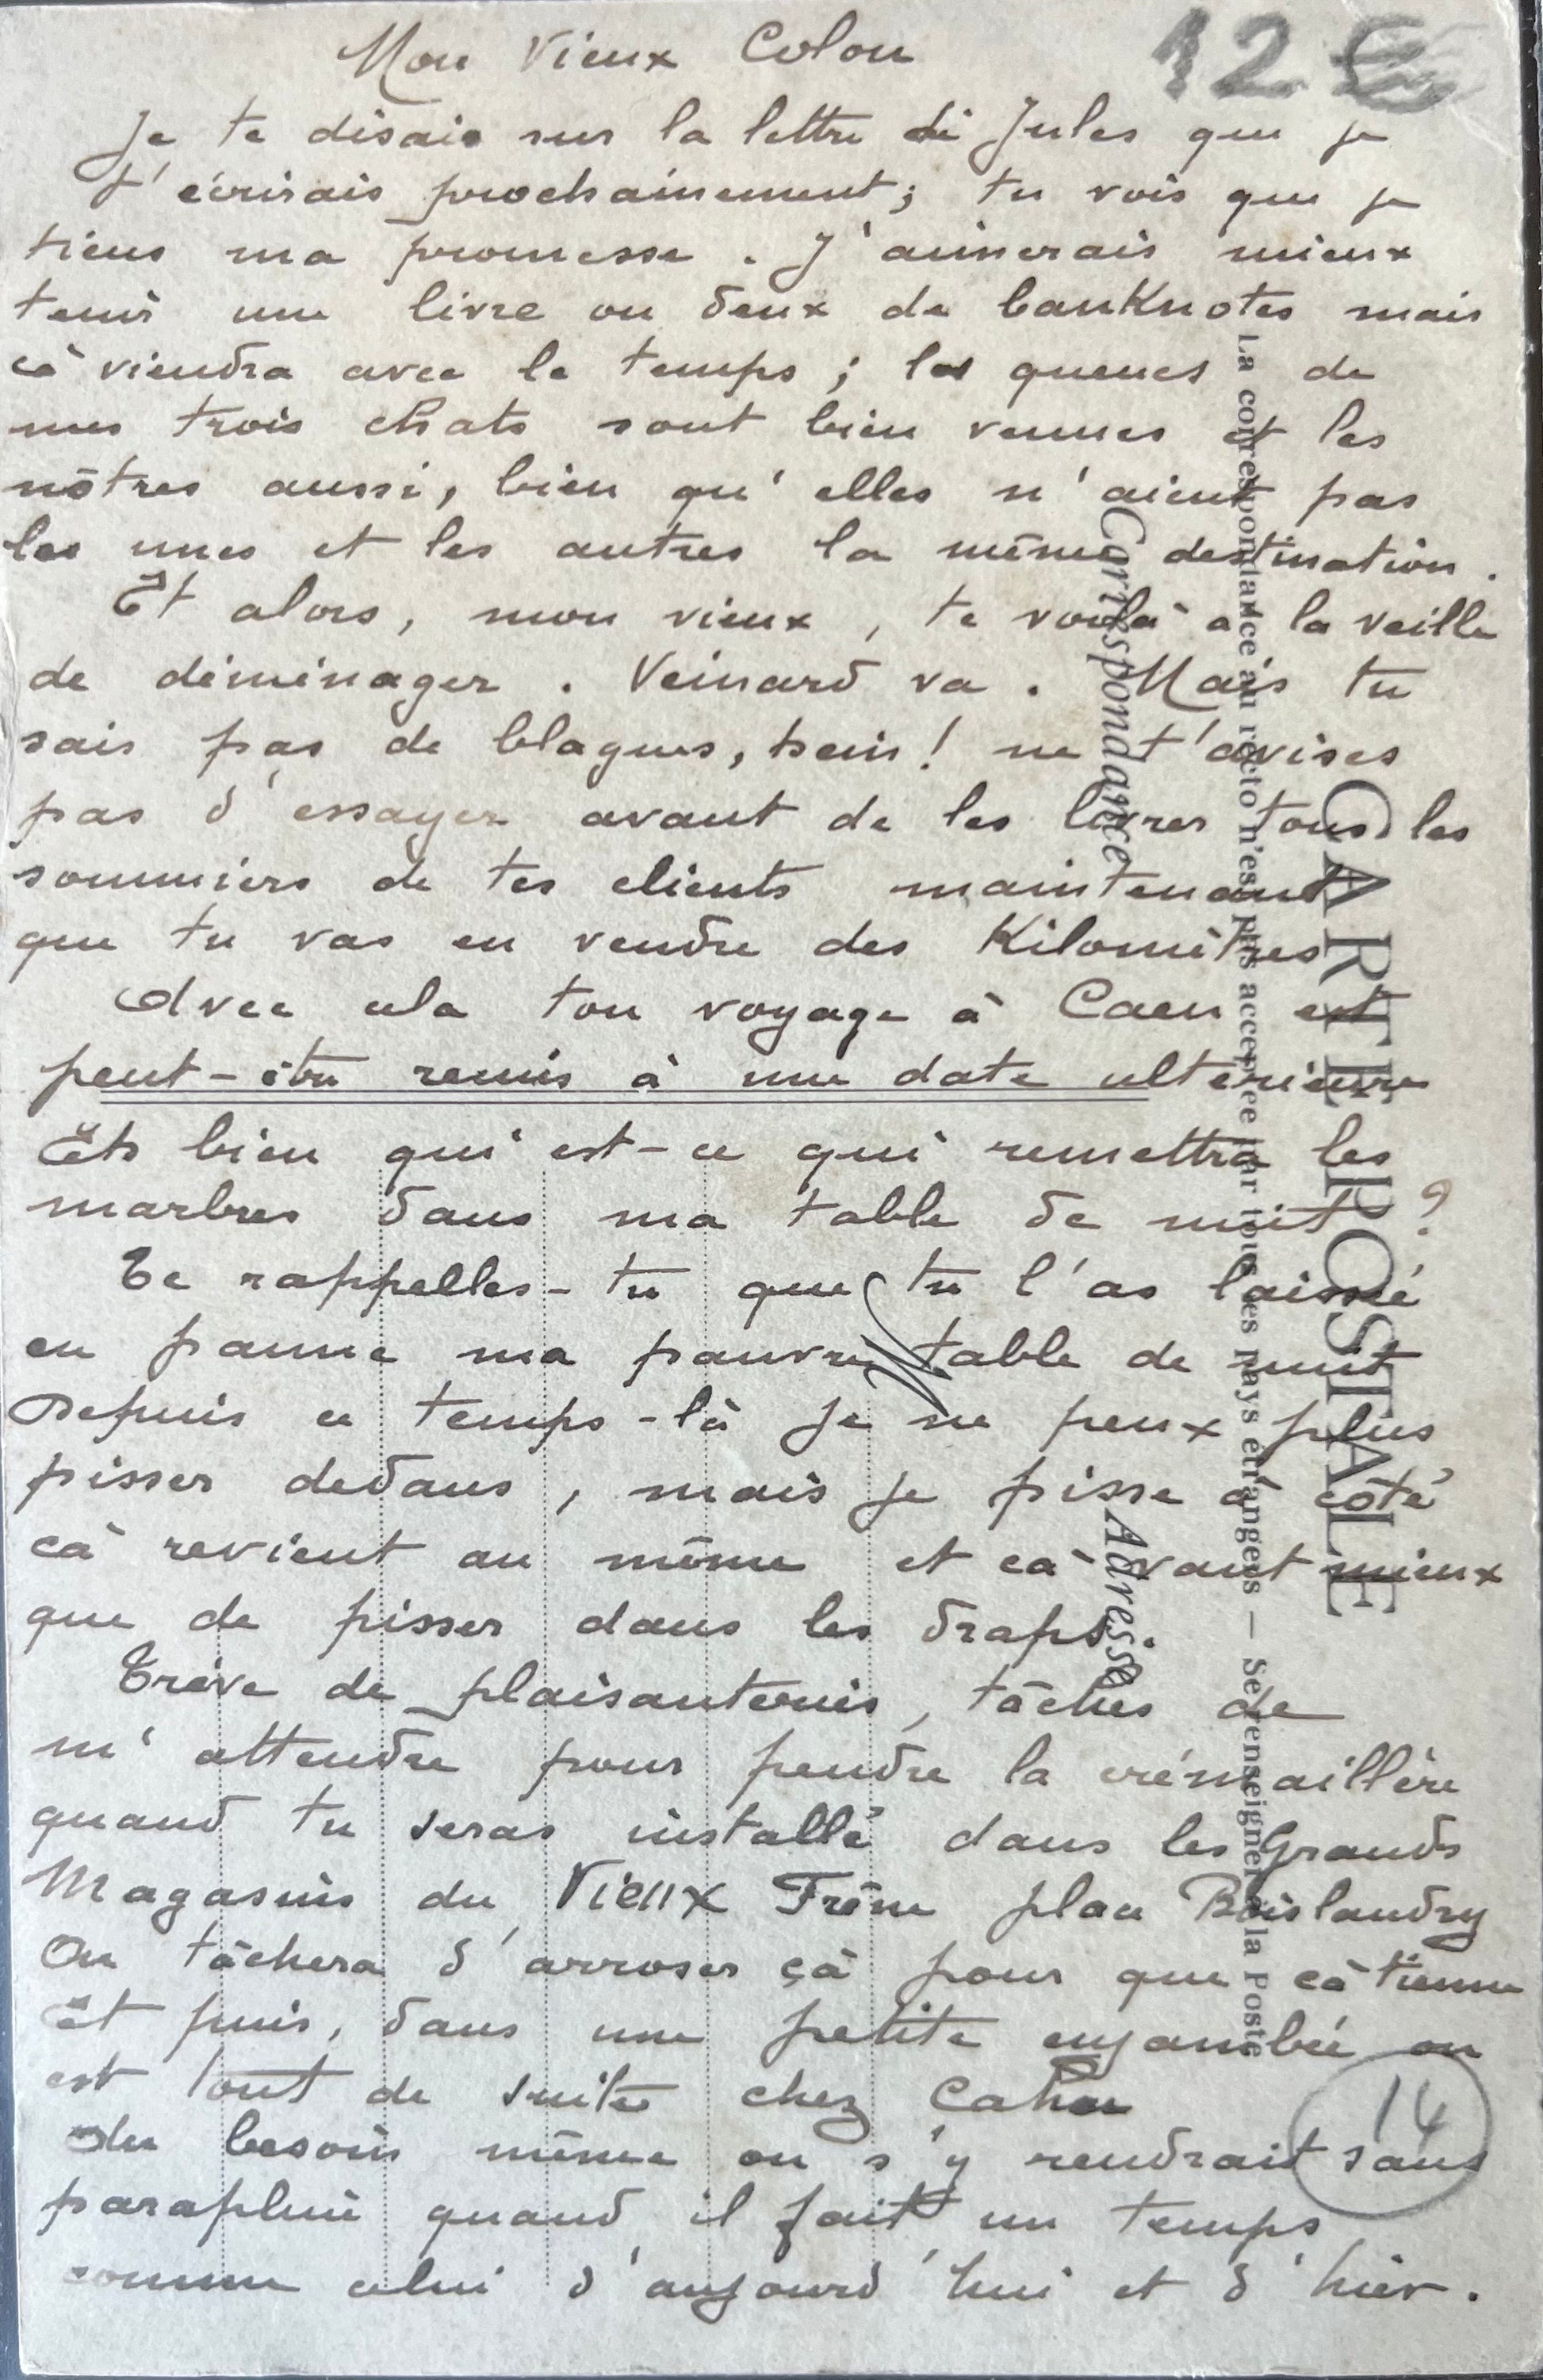 12 €
Mon Vieux Colon
Je te disais sur la lettre de Jules que je
t'écrirais prochainement; tu vois que je
tiens ma promesse. J'aimerais mieux
tenir une livre ou deux de banKnotes mais
cà viendra avec le temps; les queues de
mes trois chats sont bien venues et les
nôtres aussi, bien qu'elles n'aient pas
les unes et les autres la même destination.
Et alors, mon vieux, te voilà à la veille
de déménager. Veinard va. Mais tu
sais pas de blagues, hein! ne t'avises
pas d'essayer avant de les livrer tous les
sommiers de tes clients maintenant
que tu vas en vendre des Kilomètres
Avec cela ton voyage à Caen est
peut-être remis à une date ultérieure
Eh bien qui est-ce qui remettra les
marbres dans ma table de nuit ?
Te rappelles-tu que tu l'as laissé
en panne ma pauvre table de nuit
Depuis ce temps-là je ne peux plus
pisser dedans, mais je pisse à côté
cà revient au même et cà vaut mieux
que de pisser dans les draps.
Trève de plaisanteries, tâches de
m'attendre pour pendre la crémaillère
quand tu seras installé dans les Grands
Magasins du Vieux Frêne place Boislandry
On tâchera d'arroser çà pour que cà tienne
Et puis, dans une petite enjambée on
est tout de suite chez
Au besoin même on s'y rendrait sans
parapluie quand il fait un temps
comme celui d'aujourd'hui et d'hier.
14
CARTE POSTALE
La correspondance au recto n'est pas acceptée par tous les pays étrangers — Se renseigner à la Poste
Correspondance
Adresse